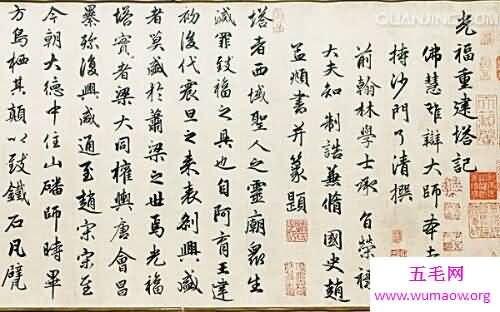 光福重建塔記
佛慧雄辯大師本
持沙門了清撰
前翰林學士承旨榮祿
大夫知制誥兼脩國史趙
孟頫書并篆題
塔者西域聖人之靈廟眾生
滅罪致福之具也自阿育王建
初後代震旦之来表剏興盛
者莫盛於蕭梁之世焉光福
塔寶者梁大同權輿唐會昌
暴殄復興咸通至趙宋宗至
今朝大德中住山磻師時畢
方烏栖其顛以致鐵石凡甓
QUANJING.COM
五毛网
www.wumaow.org